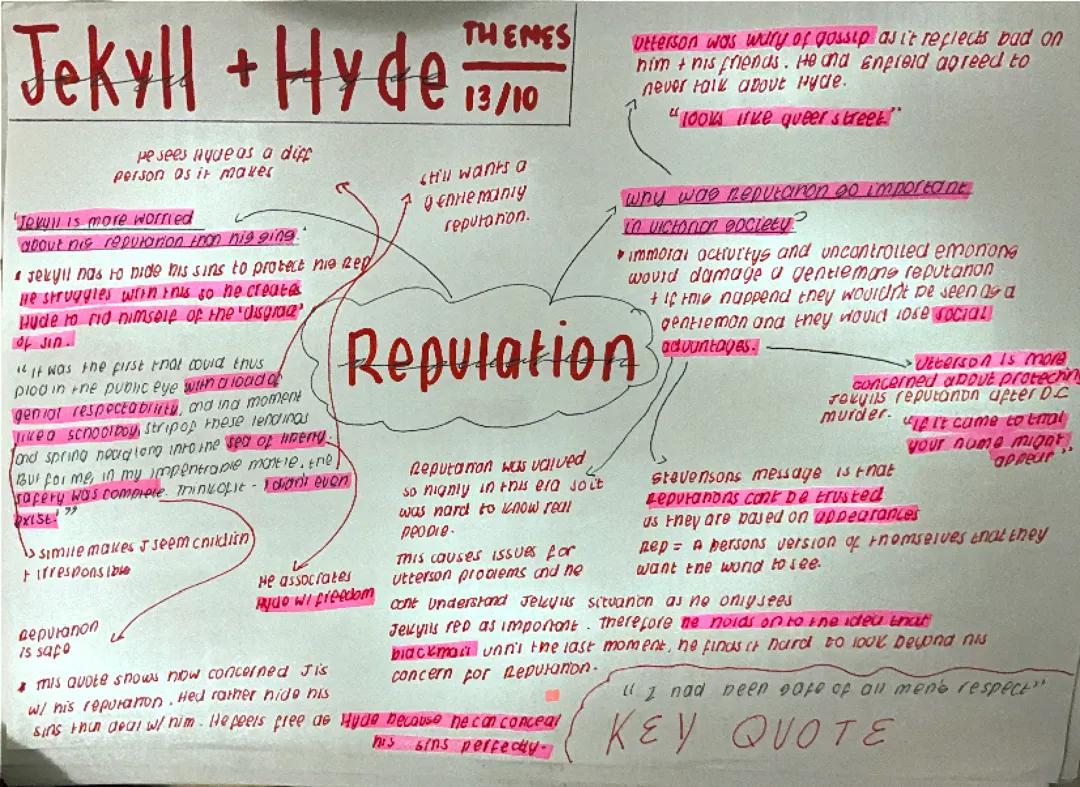 Jekyll + Hyde
THEMES
13/10
Utterson was wary of gossip as it reflects bad on
him + his friends. He and Enfield agreed to
never talk about Hyde.
"looks like queer street"
He sees Hyde as a diff
person as it makes
still wants a
gentlemanly
reputation.
why was Reputation so important
in victorian society?
"Jekyll is more worried
about his reputation than his sins."
• Jekyll has to hide his sins to protect his Rep
He struggles with this so he creates
Hyde to rid himself of the 'disgrace'
of sin.
• immoral activitys and uncontrolled emotions
would damage a gentlemans reputation
+ if this happend they wouldn't be seen as a
gentleman and they would lose social
advantages.
Reputation
"it was the first that could thus
plod in the public eye with a load of
genial respectability, and in a moment
like a schoolboy, strip of these lendings
and spring headlong into the sea of liberty.
But for me, in my impentrable mantle, the
safety was complete. Think of it - I didn't even
exist!"
Utterson is more
concerned about protecting
Jekylls reputation after D.C
murder.
"if it came to trial
your name might
appear"
Reputation was valued
so highly in this era so it
was hard to know real
people.
This causes issues for
utterson problems and he
cant understand Jekylls situation as he only sees
Jekylls rep as important. Therefore he holds on to the idea that
blackmail until the last moment, he finds it hard to look beyond his
concern for Reputation.
Stevensons message is that
Reputations cant be trusted
as they are based on appearances
Rep = A persons version of themselves that they
want the world to see.
simile makes J seem childish
+ irresponsible
He associates
Hyde w/ freedom
Reputation
is safe
• This quote shows how concerned J is
w/ his reputation. Hed rather hide his
sins than deal w/ him. He feels free as Hyde because he can conceal
his sins perfectly.
"I had been safe of all men's respect"
KEY QUOTE